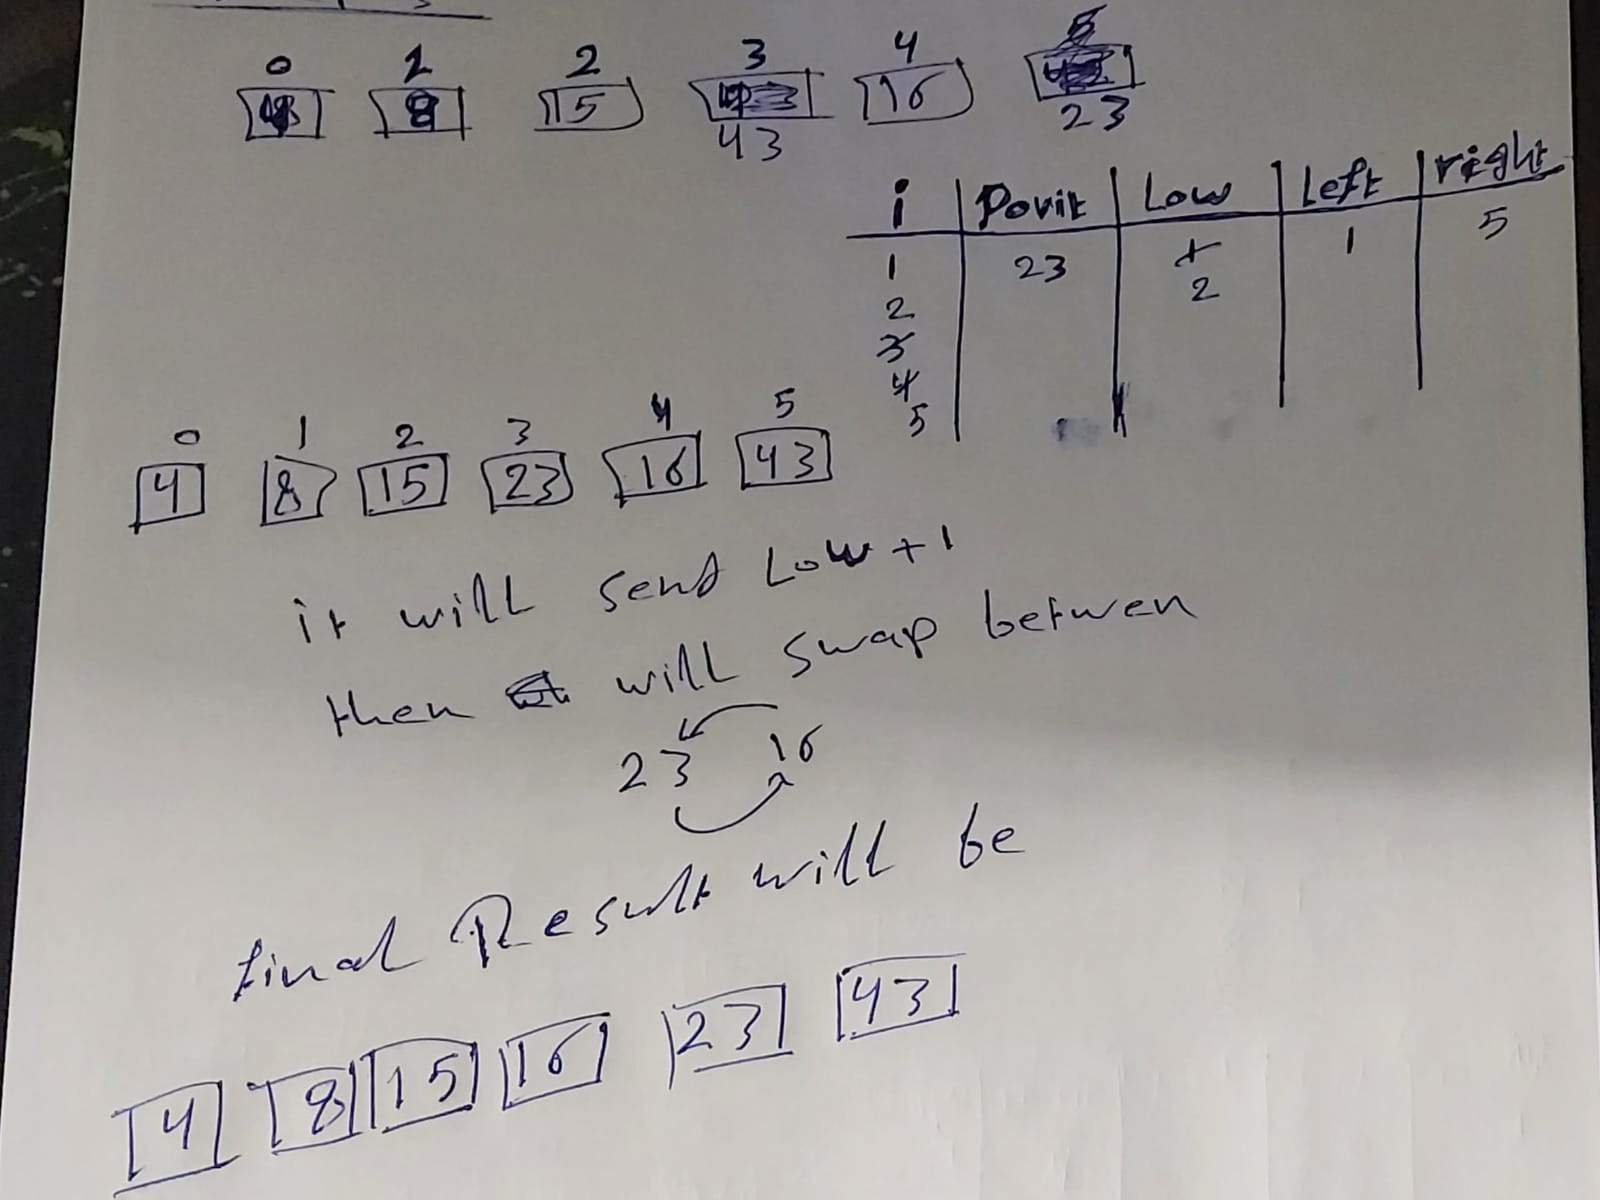 0 1 2 3 4 5
4 8 15 16
43 23
i Povit Low left right
1 23 1 1 5
2 2
3
4
5
0 1 2 3 4 5
4 8 15 23 16 43
it will send Low + 1
then will swap betwen
23 16
final Result will be
4 8 15 16 23 43